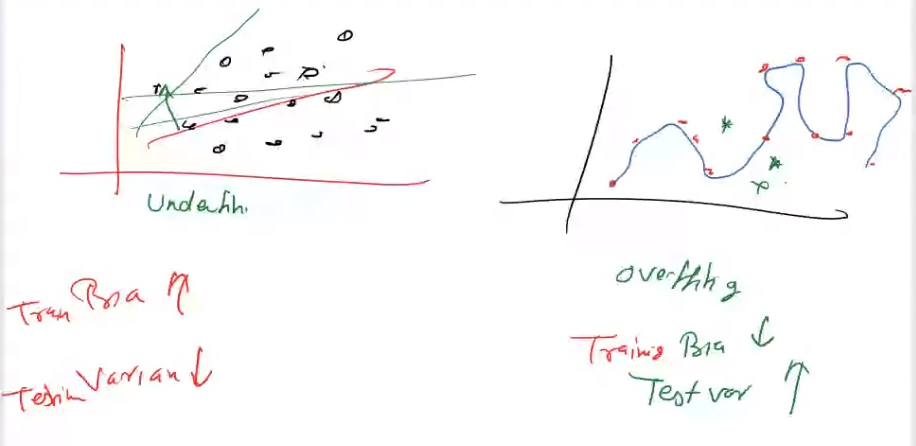 Underfih.
Tran Bia ↑
Testin Varian ↓
Overfhhg
Trainig Bia ↓
Test var ↑